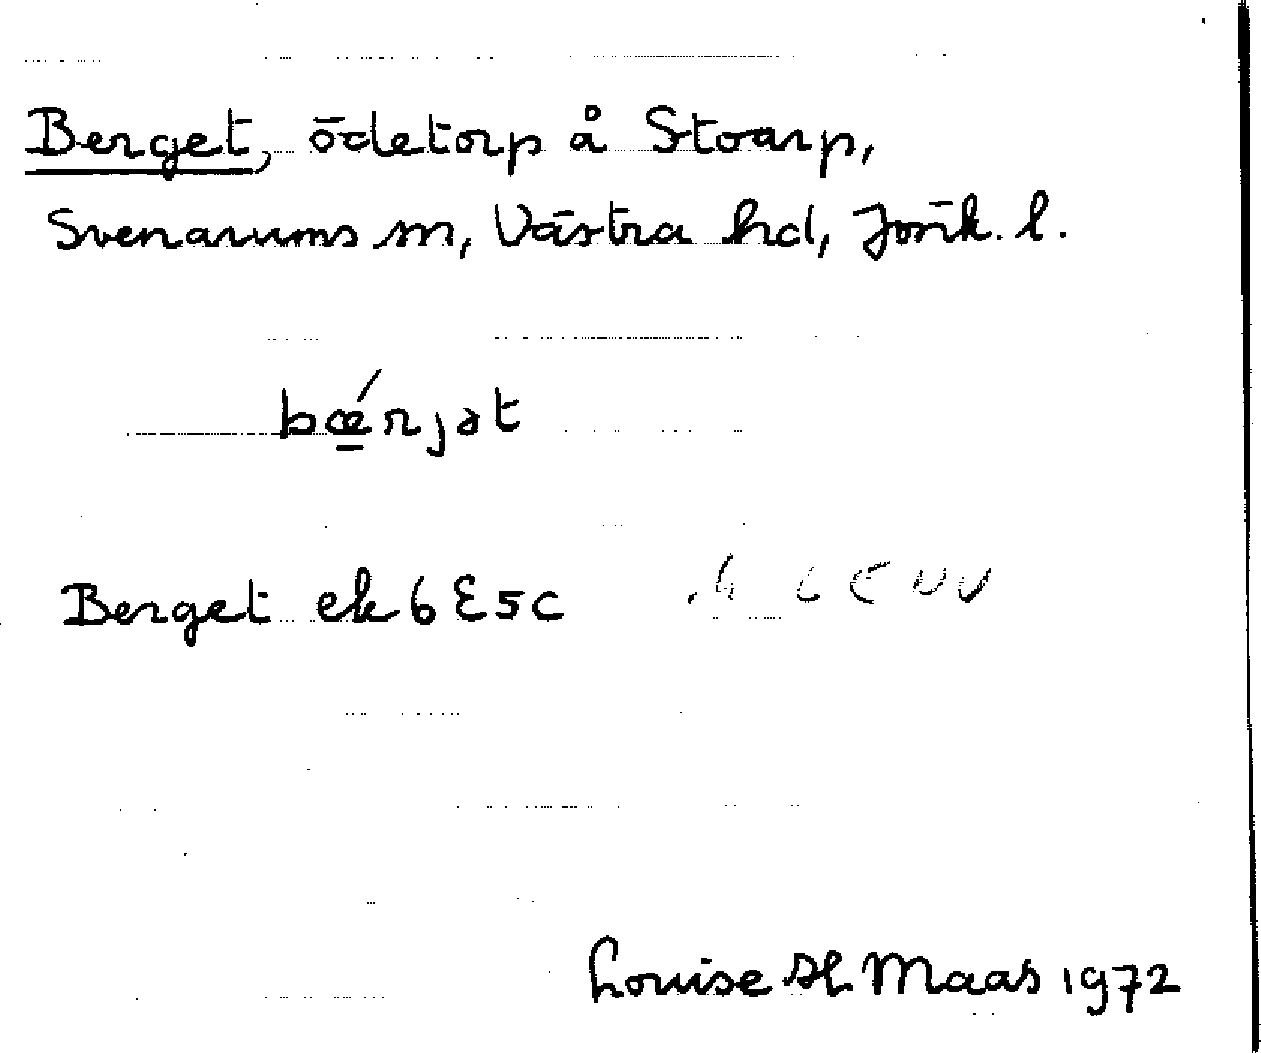 Berget, ödetorp å Stoarp,
Svenarums sn, Västra hd, Jönk. l.
bǽ̱rjət
Berget ek 6 E 5 c
Louise H Maas 1972